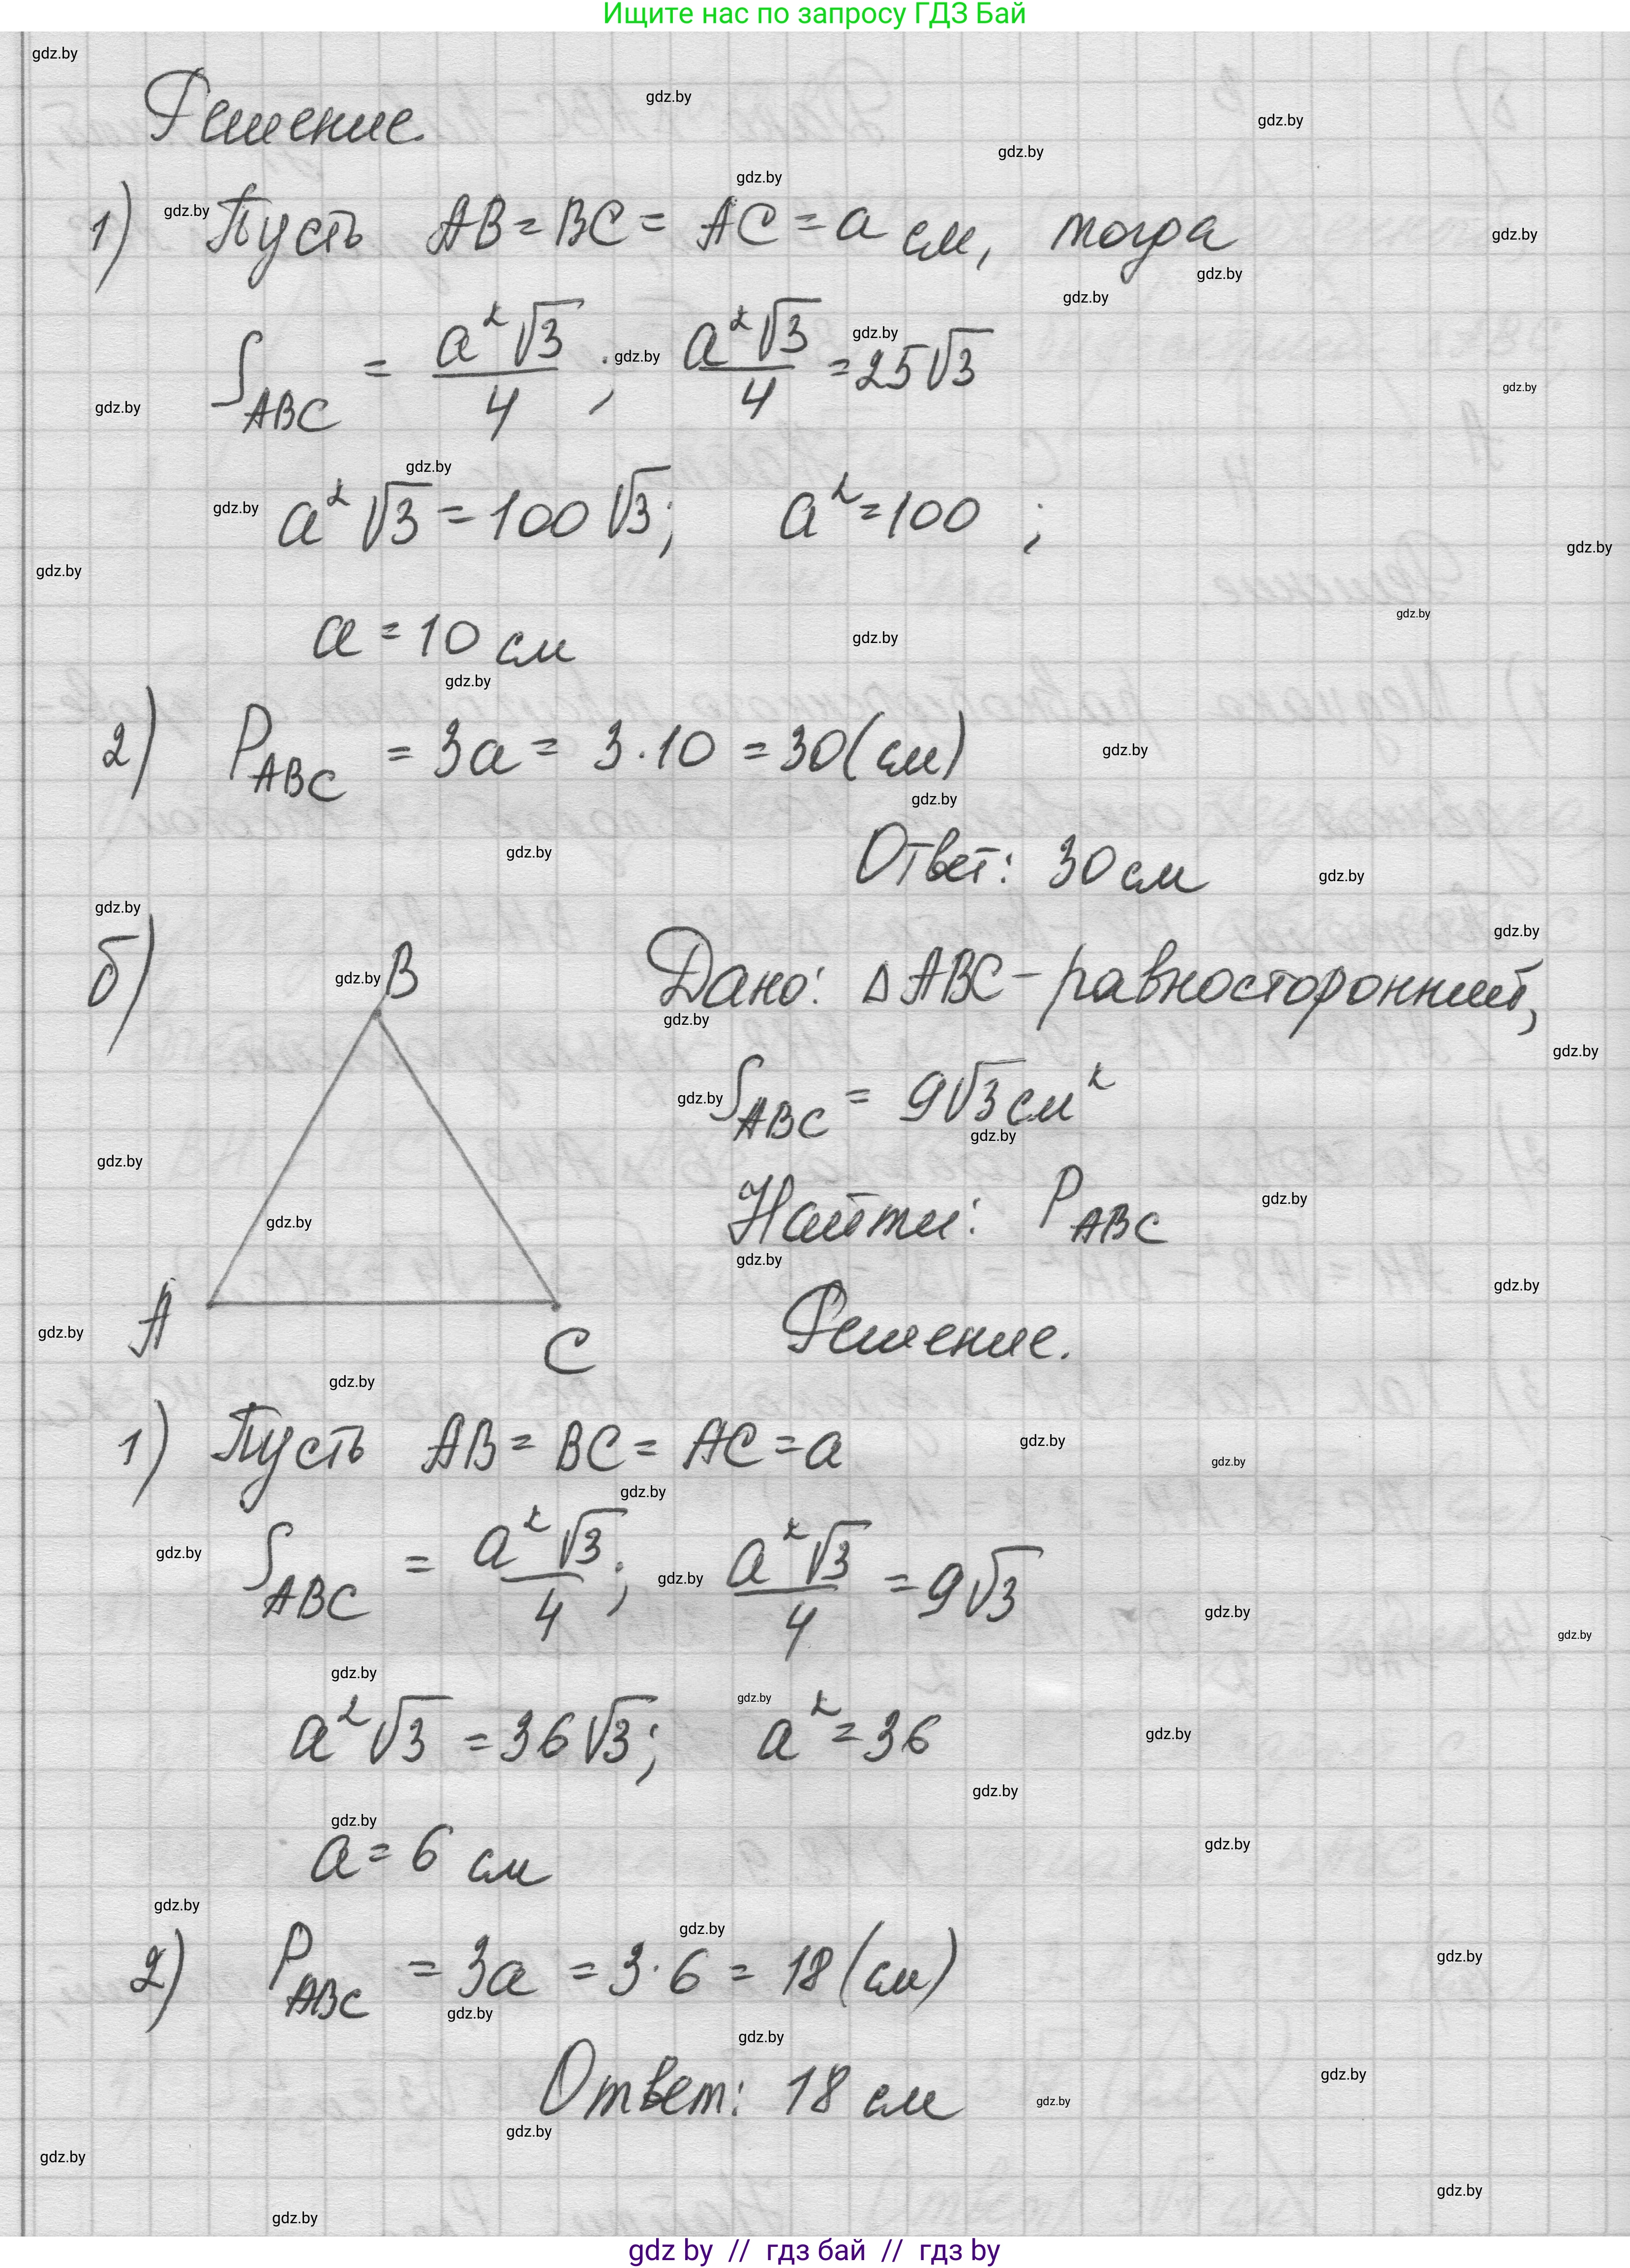 Ищите нас по запросу ГДЗ Бай
Решение.
1) Пусть AB = BC = AC = a см, тогда
S_ABC = a²√3/4 ; a²√3/4 = 25√3
a²√3 = 100√3; a² = 100 ;
a = 10 см
2) P_ABC = 3a = 3·10 = 30 (см)
Ответ: 30 см
б) B
A
C
Дано: △ABC – равносторонний,
S_ABC = 9√3 см²
Найти: P_ABC
Решение.
1) Пусть AB = BC = AC = a
S_ABC = a²√3/4 ; a²√3/4 = 9√3
a²√3 = 36√3; a² = 36
a = 6 см
2) P_ABC = 3a = 3·6 = 18 (см)
Ответ: 18 см
gdz by // гдз бай // гдз by